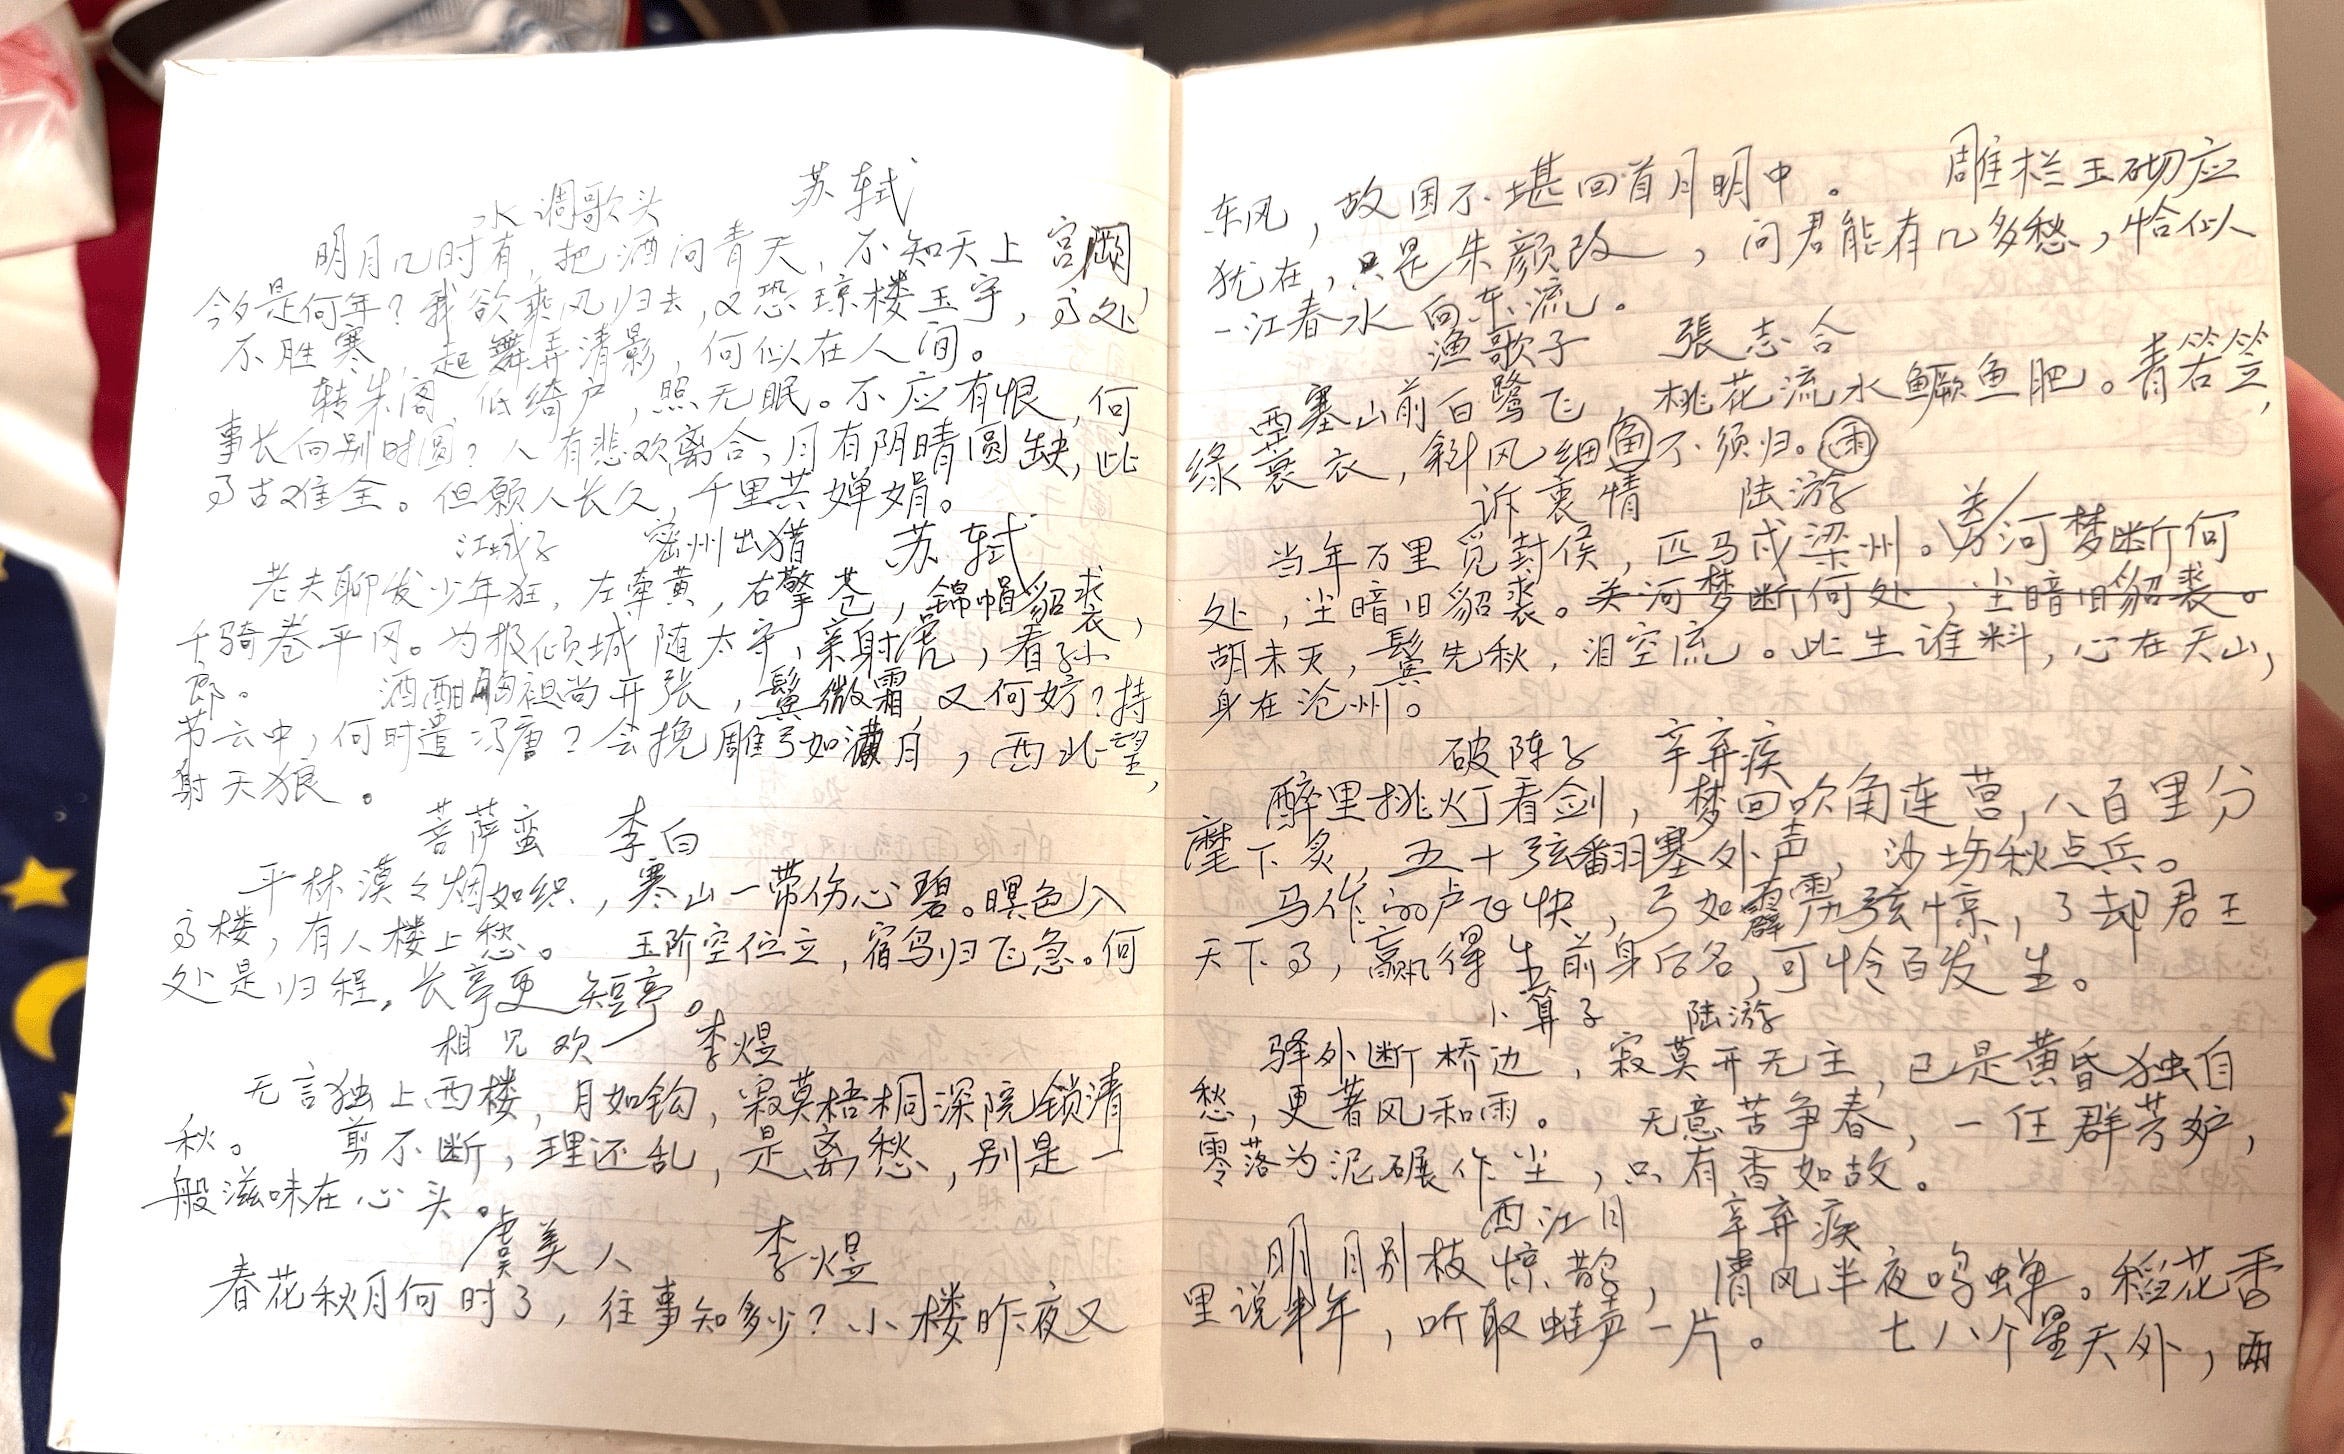 水调歌头 苏轼
明月几时有,把酒问青天,不知天上宫阙,
今夕是何年?我欲乘风归去,又恐琼楼玉宇,高处
不胜寒,起舞弄清影,何似在人间。
转朱阁,低绮户,照无眠。不应有恨,何
事长向别时圆?人有悲欢离合,月有阴晴圆缺,此
事古难全。但愿人长久,千里共婵娟。
江城子 密州出猎 苏轼
老夫聊发少年狂,左牵黄,右擎苍,锦帽貂裘,
千骑卷平冈。为报倾城随太守,亲射虎,看孙
郎。 酒酣胸袒尚开张,鬓微霜又何妨?持
节云中,何时遣冯唐?会挽雕弓如满月,西北望,
射天狼。
菩萨蛮 李白
平林漠々烟如织,寒山一带伤心碧。暝色入
高楼,有人楼上愁。 玉阶空位立,宿鸟归飞急。何
处是归程,长亭更短亭。
相见欢 李煜
无言独上西楼,月如钩,寂莫梧桐深院锁清
秋。 剪不断,理还乱,是离愁,别是一
般滋味在心头。
虞美人 李煜
春花秋月何时了,往事知多少?小楼昨夜又
东风,故国不堪回首月明中。 雕栏玉砌应
犹在,只是朱颜改,问君能有几多愁,恰似
一江春水向东流。
渔歌子 張志合
西塞山前白鹭飞,桃花流水鳜鱼肥。青箬笠,
绿蓑衣,斜风细鱼不须归。雨
诉衷情 陆游
当年万里觅封侯,匹马戍梁州。关河梦断何
处,尘暗旧貂裘。关河梦断何处,尘暗旧貂裘。
胡未灭,鬓先秋,泪空流。此生谁料,心在天山,
身在沧州。
破阵子 辛弃疾
醉里挑灯看剑,梦回吹角连营,八百里分
麾下炙,五十弦翻塞外声,沙场秋点兵。
马作的卢飞快,弓如霹雳弦惊,了却君王
天下事,赢得生前身后名,可怜百发生。
卜算子 陆游
驿外断桥边,寂莫开无主,已是黄昏独自
愁,更著风和雨。 无意苦争春,一任群芳妒,
零落为泥碾作尘,只有香如故。
西江月 辛弃疾
明月别枝惊鹊,清风半夜鸣蝉。稻花香
里说丰年,听取蛙声一片。 七八个星天外,两